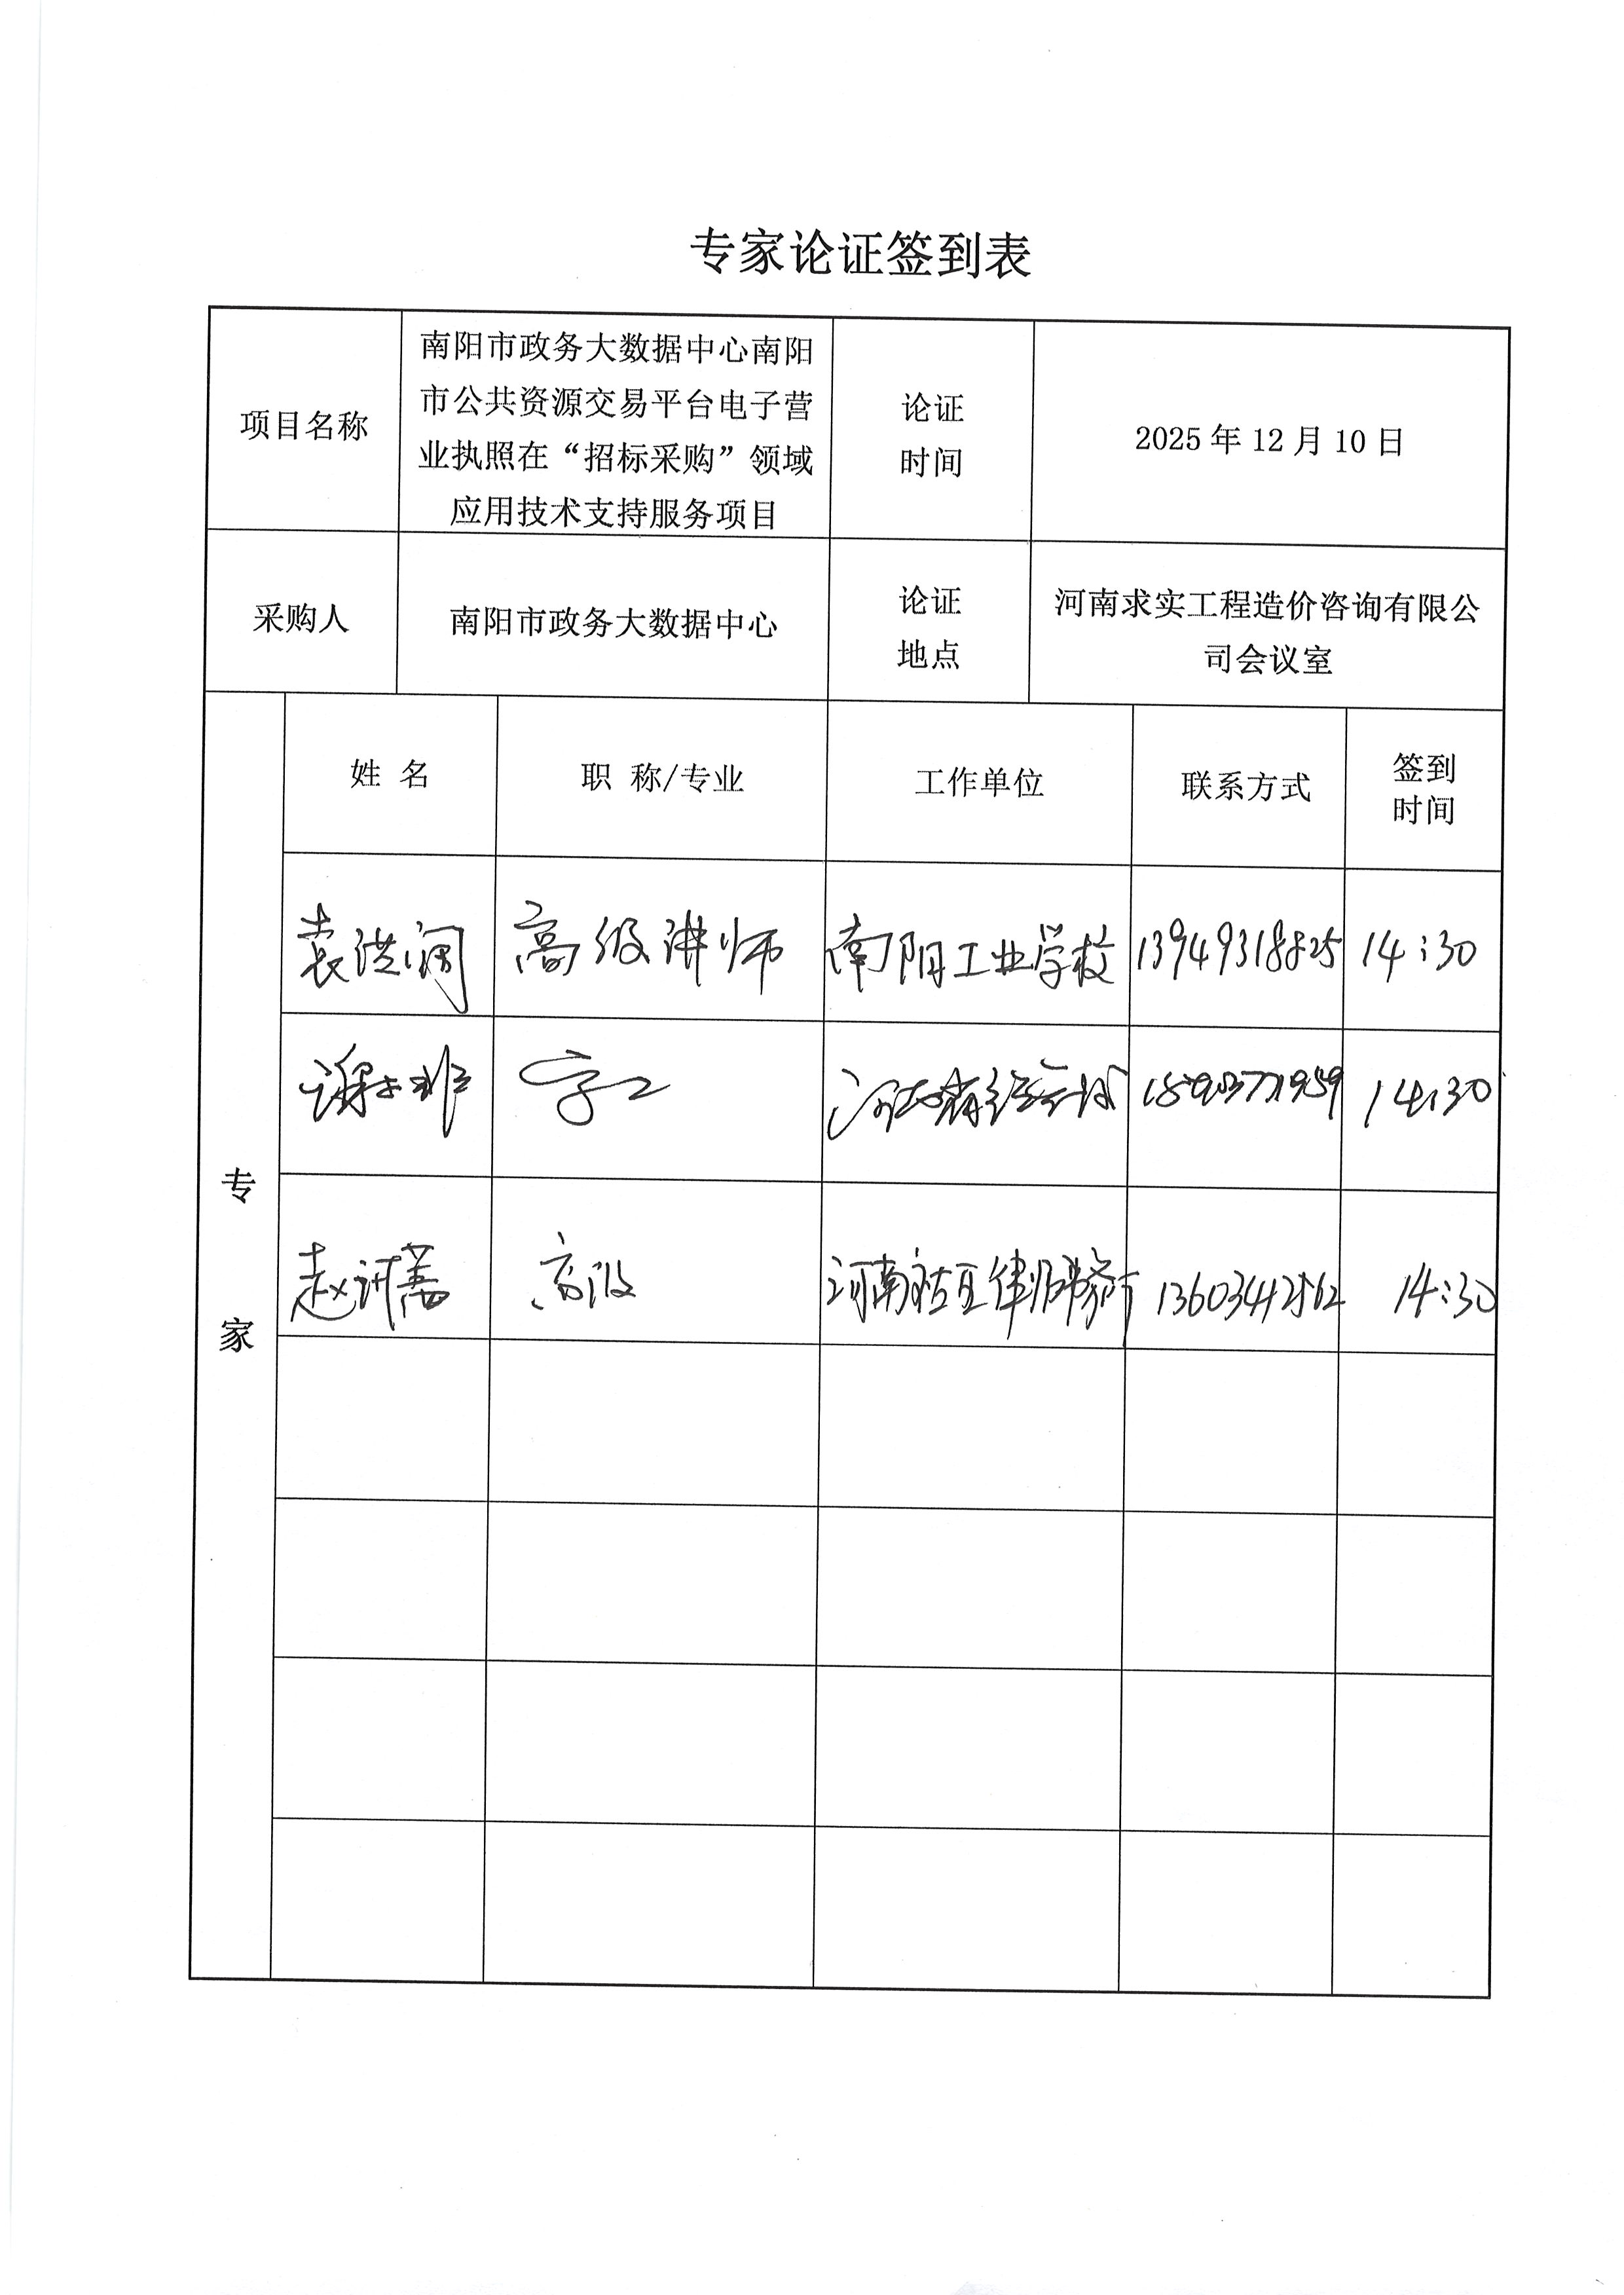 专家论证签到表
项目名称
南阳市政务大数据中心南阳
市公共资源交易平台电子营
业执照在“招标采购”领域
应用技术支持服务项目
论证
时间
2025 年 12 月 10 日
采购人
南阳市政务大数据中心
论证
地点
河南求实工程造价咨询有限公
司会议室
专
家
姓 名
职 称/专业
工作单位
联系方式
签到
时间
袁洪涧 高级讲师 南阳工业学校 13949318825 14:30
谢 14:30
赵 高级 河南 律师事务所 14:30